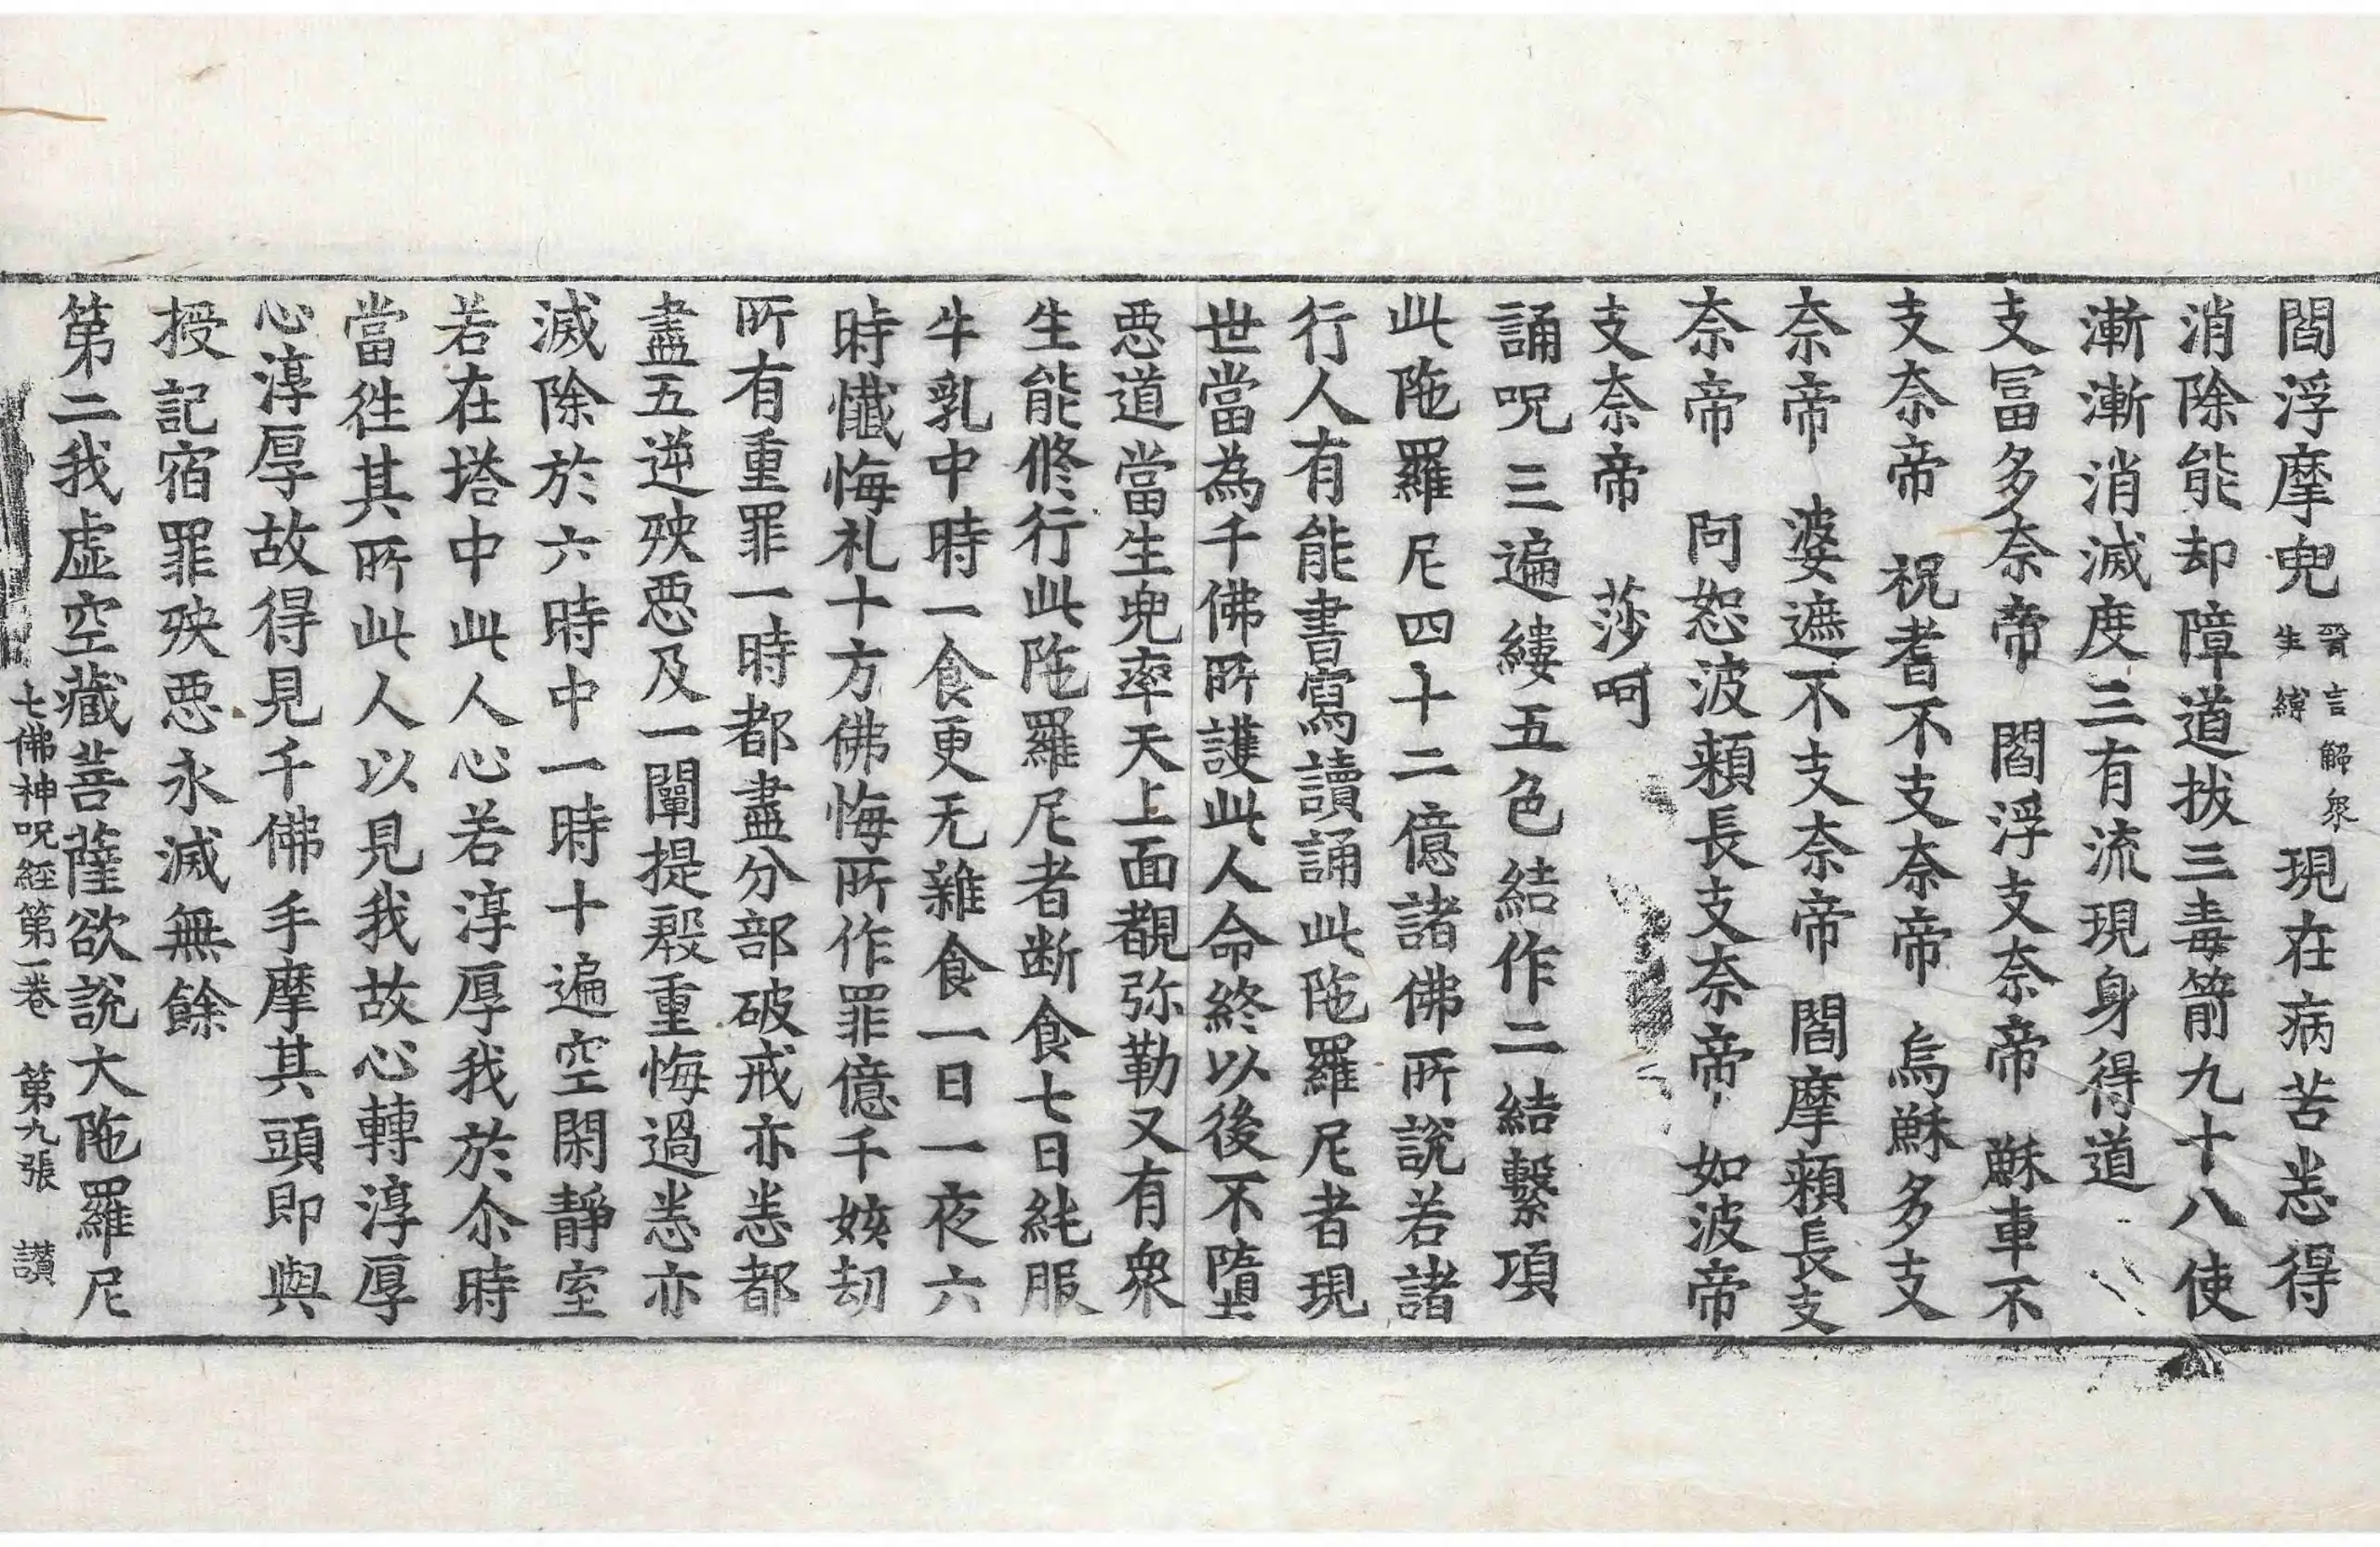 閻浮摩兜晉言解衆生縛現在病苦悉得
消除能却障道拔三毒箭九十八使
漸漸消滅度三有流現身得道
支冨多奈帝　閻浮支奈帝　穌車不
支奈帝　祝耆不支奈帝　烏穌多支
奈帝　婆遮不支奈帝　閻摩頼長支
奈帝　阿恕波頼長支奈帝　如波帝
支奈帝　莎呵
誦呪三遍縷五色結作二結繫項
此陁羅尼四十二億諸佛所說若諸
行人有能書寫讀誦此陁羅尼者現
世當為千佛所護此人命終以後不墮
惡道當生兜率天上面覩弥勒又有衆
生能修行此陁羅尼者断食七日純服
牛乳中時一食更无雜食一日一夜六
時懺悔礼十方佛悔所作罪億千姟劫
所有重罪一時都盡分部破戒亦悉都
盡五逆殃惡及一闡提殷重悔過悉亦
滅除於六時中一時十遍空閑靜室
若在塔中此人心若淳厚我於尒時
當往其所此人以見我故心轉淳厚
心淳厚故得見千佛手摩其頭即與
授記宿罪殃惡永滅無餘
第二我虛空藏菩薩欲說大陁羅尼
七佛神呪經第一卷　第九張　讃